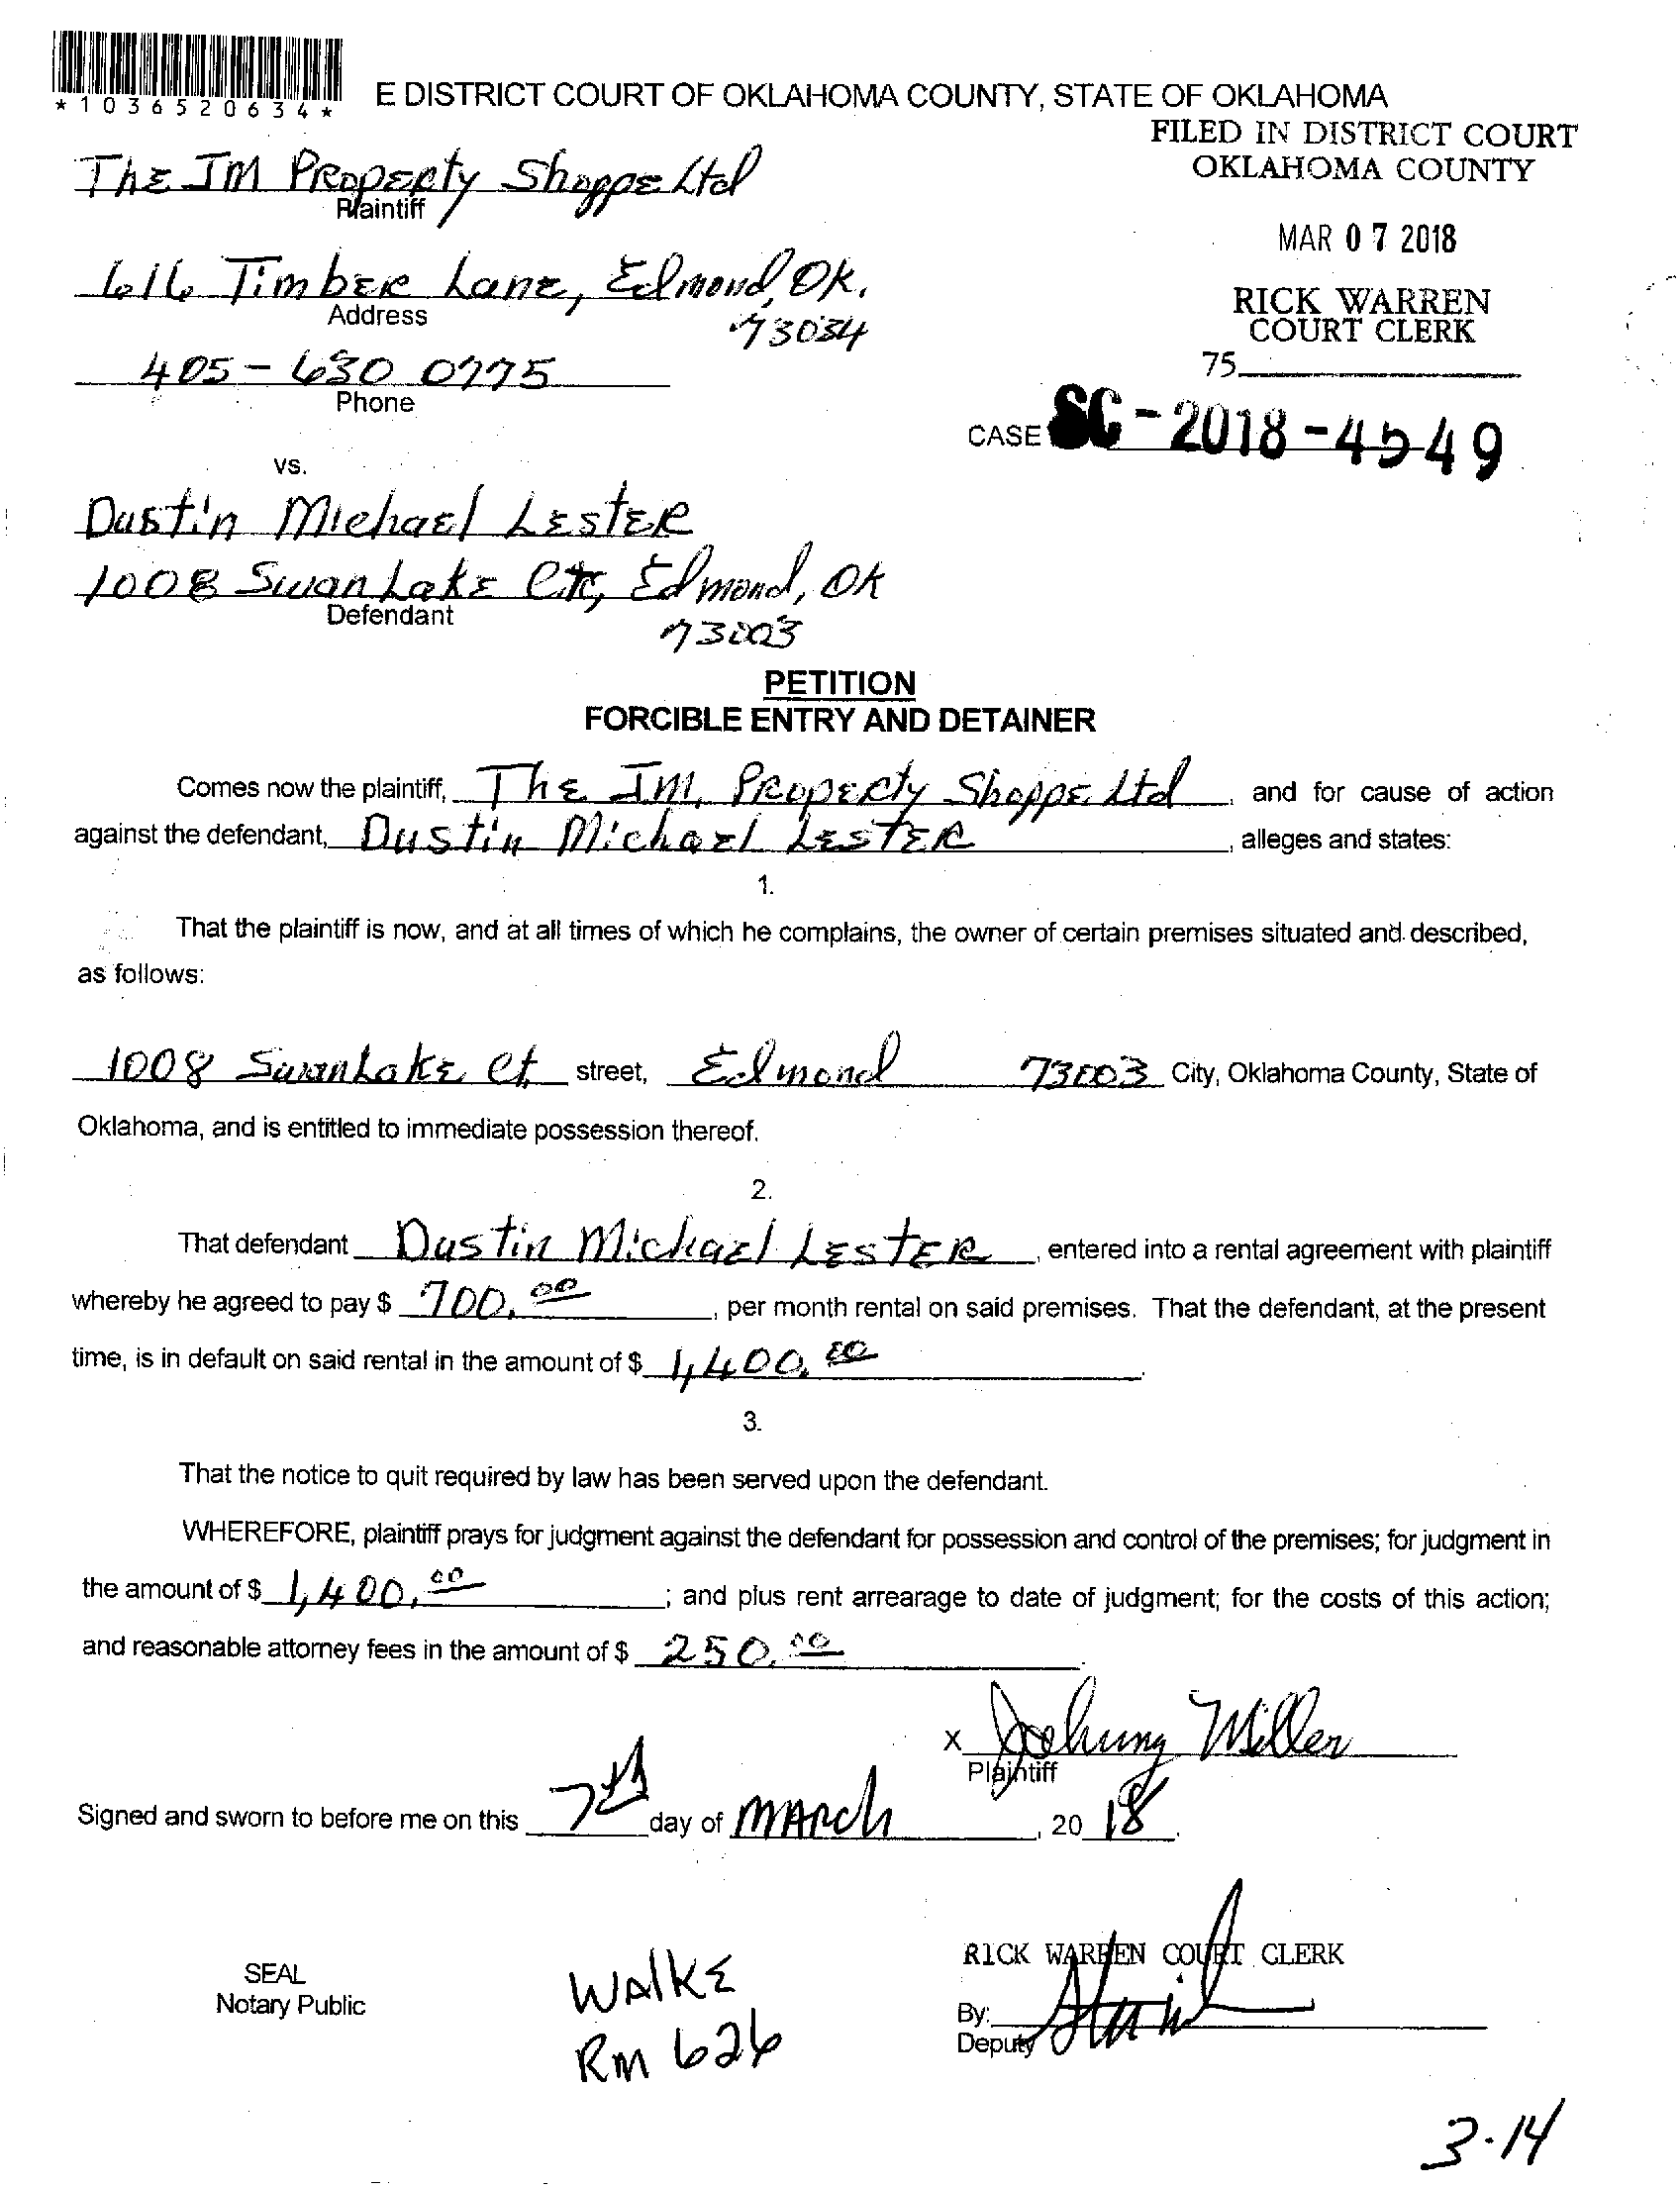 *1036520634*
E DISTRICT COURT OF OKLAHOMA COUNTY, STATE OF OKLAHOMA
FILED IN DISTRICT COURT
OKLAHOMA COUNTY
The JM Property Shoppe Ltd
Plaintiff
MAR 07 2018
616 Timber Lane, Edmond, Ok.
Address
73034
RICK WARREN
COURT CLERK
75
405-630 0775
Phone
CASE SC-2018-4549
vs.
Dustin Michael Lester
1008 Swan Lake Ct, Edmond, OK
Defendant
73003
PETITION
FORCIBLE ENTRY AND DETAINER
Comes now the plaintiff, The JM, Property Shoppe Ltd, and for cause of action
against the defendant, Dustin Michael Lester, alleges and states:
1.
That the plaintiff is now, and at all times of which he complains, the owner of certain premises situated and described,
as follows:
1008 Swan Lake Ct street, Edmond 73003 City, Oklahoma County, State of
Oklahoma, and is entitled to immediate possession thereof.
2.
That defendant Dustin Michael Lester, entered into a rental agreement with plaintiff
whereby he agreed to pay $ 700.00, per month rental on said premises. That the defendant, at the present
time, is in default on said rental in the amount of $ 1,400.00.
3.
That the notice to quit required by law has been served upon the defendant.
WHEREFORE, plaintiff prays for judgment against the defendant for possession and control of the premises; for judgment in
the amount of $ 1,400.00; and plus rent arrearage to date of judgment; for the costs of this action;
and reasonable attorney fees in the amount of $ 250.00.
x Johnny Miller
Plaintiff
Signed and sworn to before me on this 7th day of March, 20 18.
SEAL
Notary Public
Walke
Rm 626
RICK WARREN COURT CLERK
By:
Deputy
3-14